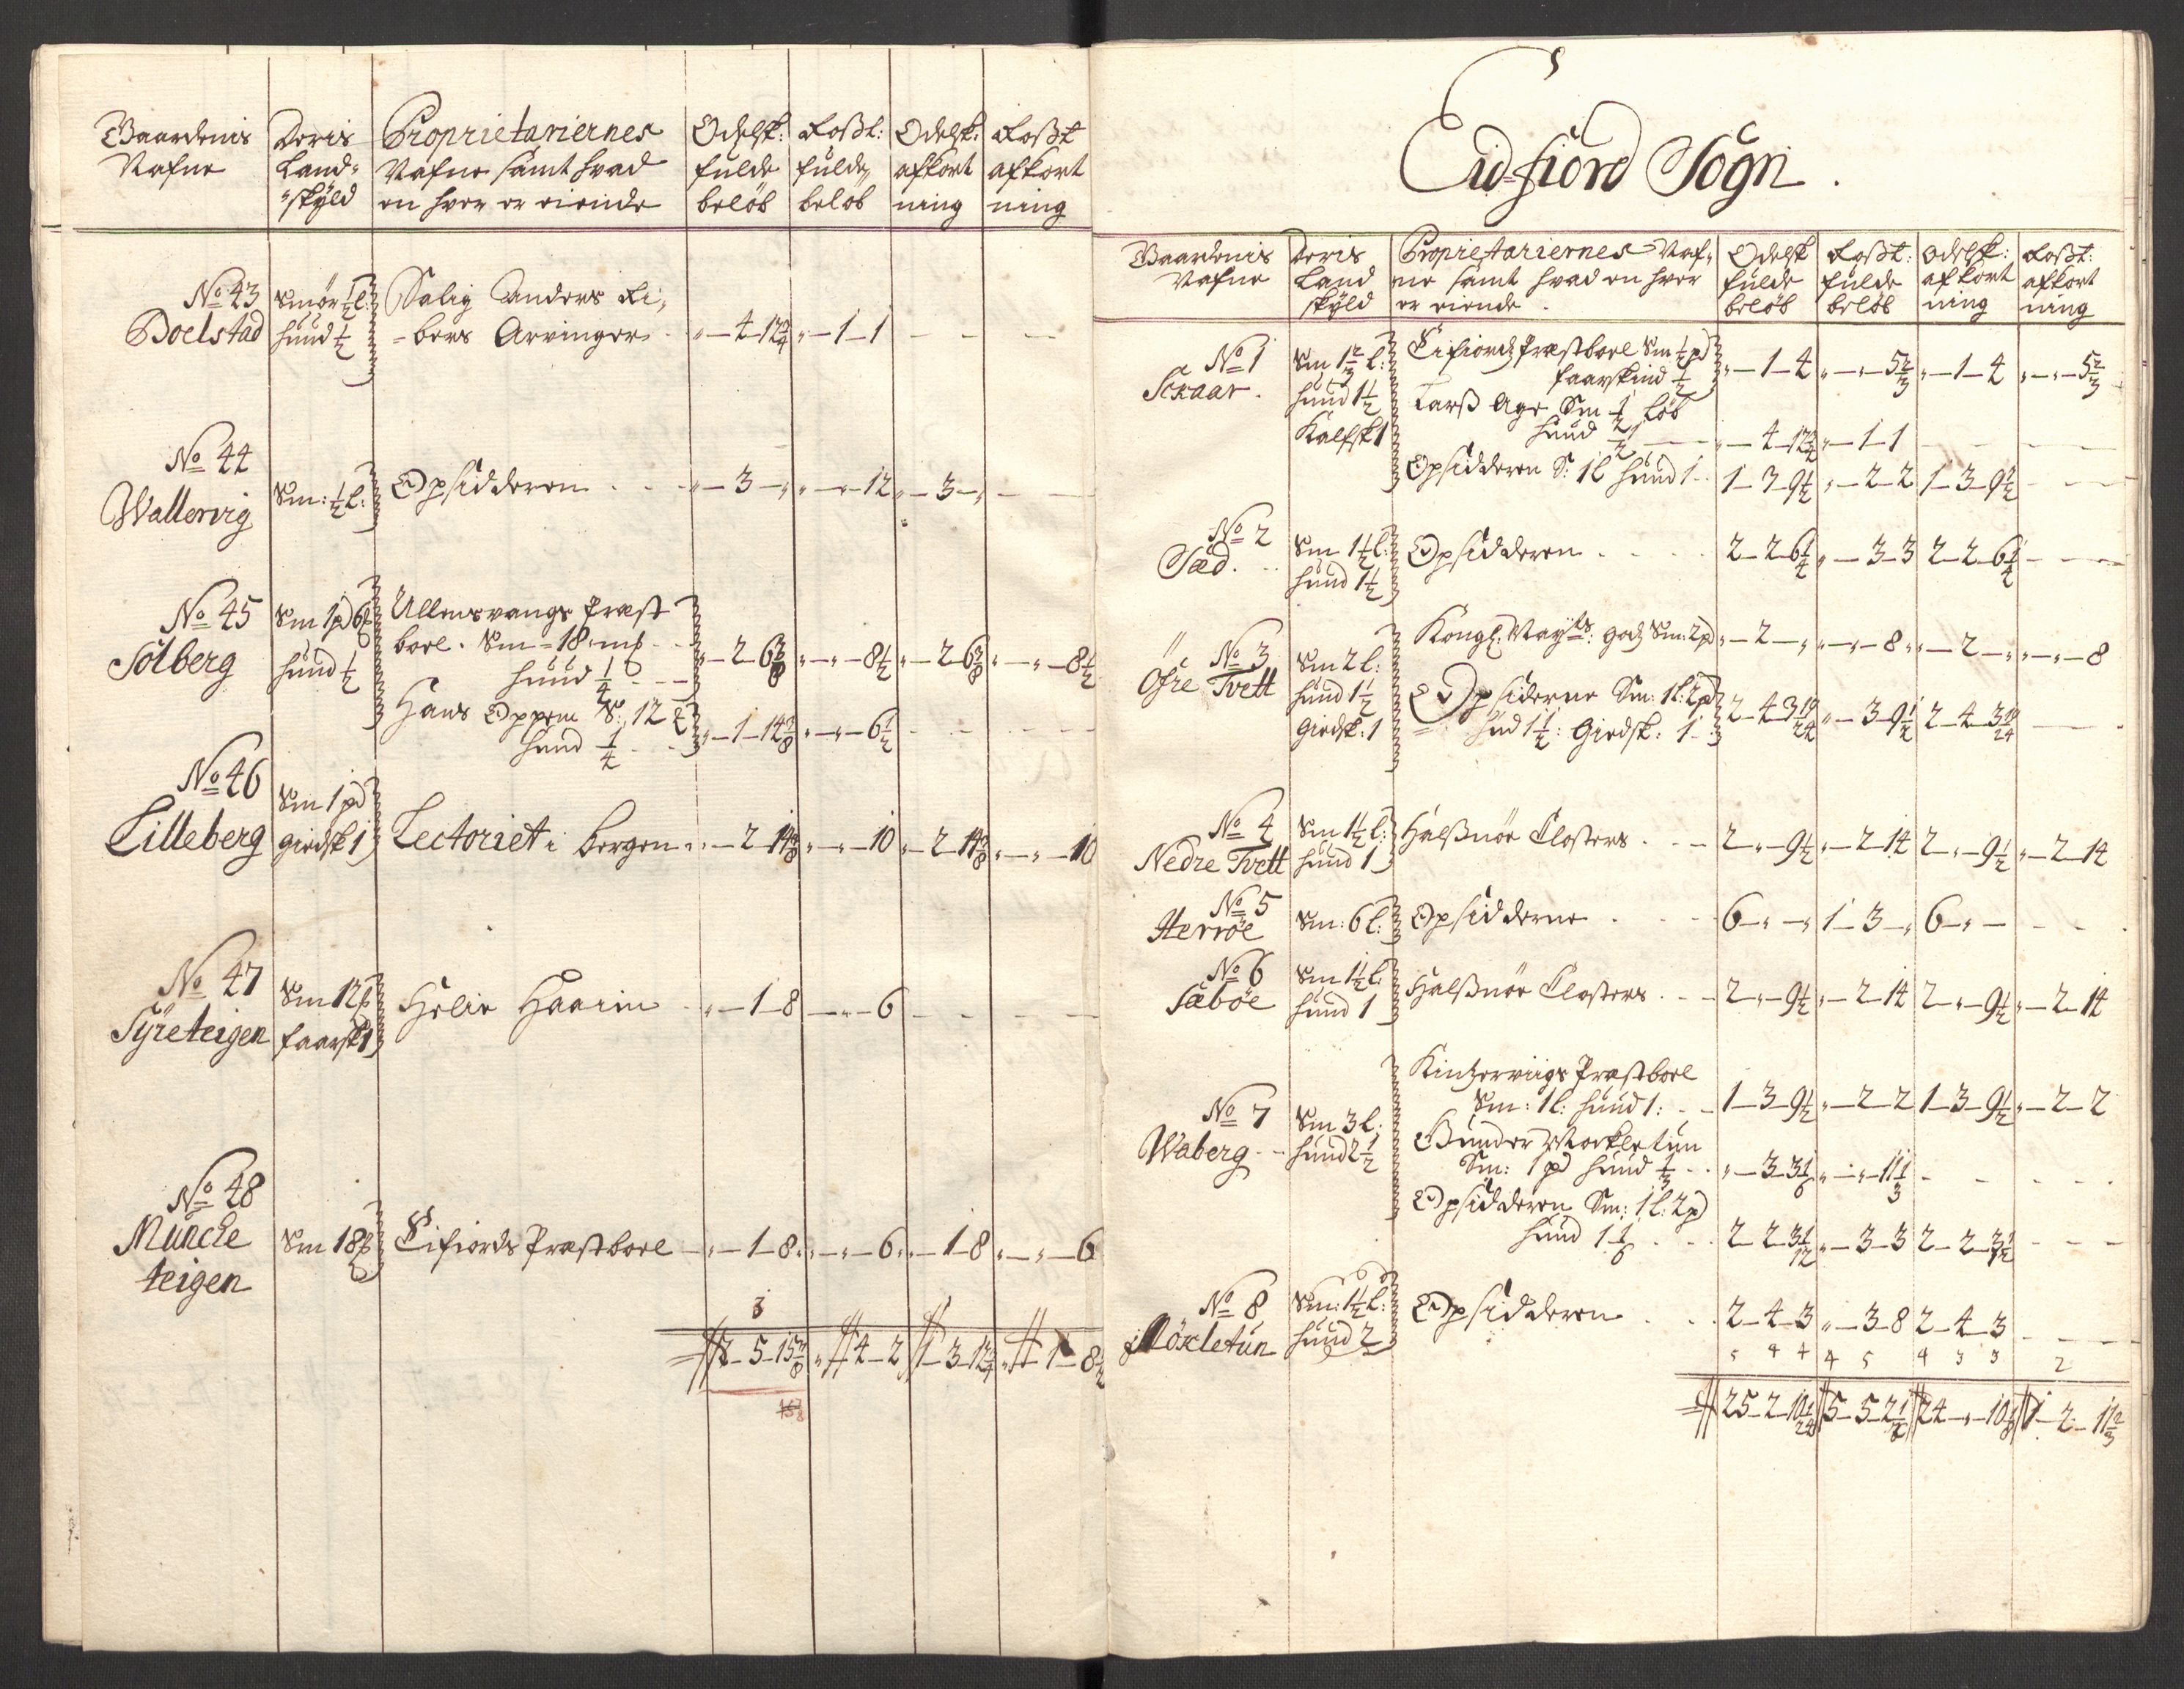 Gaardenis Nafne | Deris Land-skyld | Proprietariernes Nafne samt hvad en hver er eiende | Odelsk: fulde beløb | Roßt: fulde beløb | Odelsk: afkort ning | Roßt afkort ning
No 43 Boelstad | Smør ½ l: huud ½ | Salig Anders Ri-
=bers Arvinger | " 4 12¾ | " 1 1 | — | —
No 44 Wallervig | Sm: ½ l: | Opsidderen | " 3 " | " " 12 | " 3 " | —
No 45 Solberg | Sm 1 pd 6 huud ½ | Ullensvangs Præst
boel. Sm 18 mk
huud ¼ | " 2 6⅜ | " " 8½ | " 2 6⅜ | " " 8½
Hans Oppem S: 12
huud ¼ | " 1 14⅜ | " " 6½ | — | —
No 46 Lilleberg | Sm 1 pd giedsk 1 | Lectoriet i Bergen | " 2 14⅜ | " " 10 | " 2 14⅜ | " " 10
No 47 Syreteigen | Sm 12 faarsk 1 | Helie Haaim | " 1 8 | " " 6 | — | —
No 48 Muncke teigen | Sm 18 | Eifiords Præstboel | " 1 8 | " " 6 | " 1 8 | " " 6
5 15⅞ | 4 2 | 3 12¾ | 1 8½
Eid-fiord Sogn.
Gaardenis Nafne | Deris Land skyld | Proprietariernes Naf-
ne samt hvad en hver
er eiende | Odelsk fulde beløb | Roßt: fulde beløb | Odelsk: afkort ning | Roßt: afkort ning
No 1 Scraar. | Sm 1⅔ l: huud 1½ Kalfsk 1 | Eifiords Præstboel Sm ½ pd
faarskind ½ | " 1 4 | " " 5⅔ | " 1 4 | " " 5⅔
Larß Age Sm ½ Løb
huud ½ | " 4 12¾ | " 1 1 | — | —
Opsidderen S: 1 l huud 1 | 1 3 9½ | " 2 2 | 1 3 9½ | —
No 2 Sæd. | Sm 1½ l: huud 1½ | Opsidderen | 2 2 6¼ | " 3 3 | 2 2 6¼ | —
No 3 Öfre Tvett | Sm 2 l: huud 1½ Giedsk: 1 | Kongl: Mayts: gods Sm: 2 pd | " 2 " | " " 8 | " 2 " | " " 8
Opsiderne Sm: 1 l: 2 pd
hud 1½: Giedsk: 1 | 2 4 3 19/24 | " 3 9½ | 2 4 3 19/24 | —
No 4 Nedre Tvett | Sm 1½ l: huud 1 | Halßnøe Closters | 2 " 9½ | " 2 14 | 2 " 9½ | " 2 14
No 5 Herröe | Sm: 6 l: | Opsidderne | 6 " " | 1 3 " | 6 " " | —
No 6 Sæbøe | Sm 1½ l: huud 1 | Halßnøe Closters | 2 " 9½ | " 2 14 | 2 " 9½ | " 2 14
No 7 Waberg | Sm 3 l: huud 2½ | Kintzerviigs Præstboel
Sm: 1 l: huud 1: | 1 3 9½ | " 2 2 | 1 3 9½ | " 2 2
Gunder Mørkletun
Sm: 1 pd huud ⅓ | " 3 3⅙ | " " 11⅓ | — | —
Opsidderen Sm: 1 l: 2 pd
huud 1⅙ | 2 2 3 1/12 | " 3 3 | 2 2 3 1/12 | —
No 8 Møkletun | Sm: 1½ l: huud 2 | Opsidderen | 2 4 3 | " 3 8 | 2 4 3 | —
25 2 10 1/24 | 5 5 2⅙ | 24 " 10⅛ | 1 2 11⅔